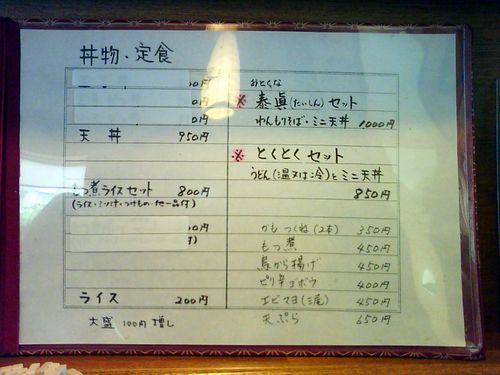 丼物・定食
0円
0円
0円
天丼 950円
もつ煮ライスセット 800円
(ライス・ミソ汁・つけもの・他一品付)
0円
ライス 200円
大盛 100円増し
みとくな
※ 泰眞(たいしん)セット
わんもりそば・ミニ天丼 1,000円
※ とくとくセット
うどん(温又は冷)とミニ天丼
850円
かもつくね(2本) 350円
もつ煮 450円
鳥から揚げ 450円
ピリ辛ゴボウ 400円
エビマヨ(三尾) 450円
天ぷら 650円